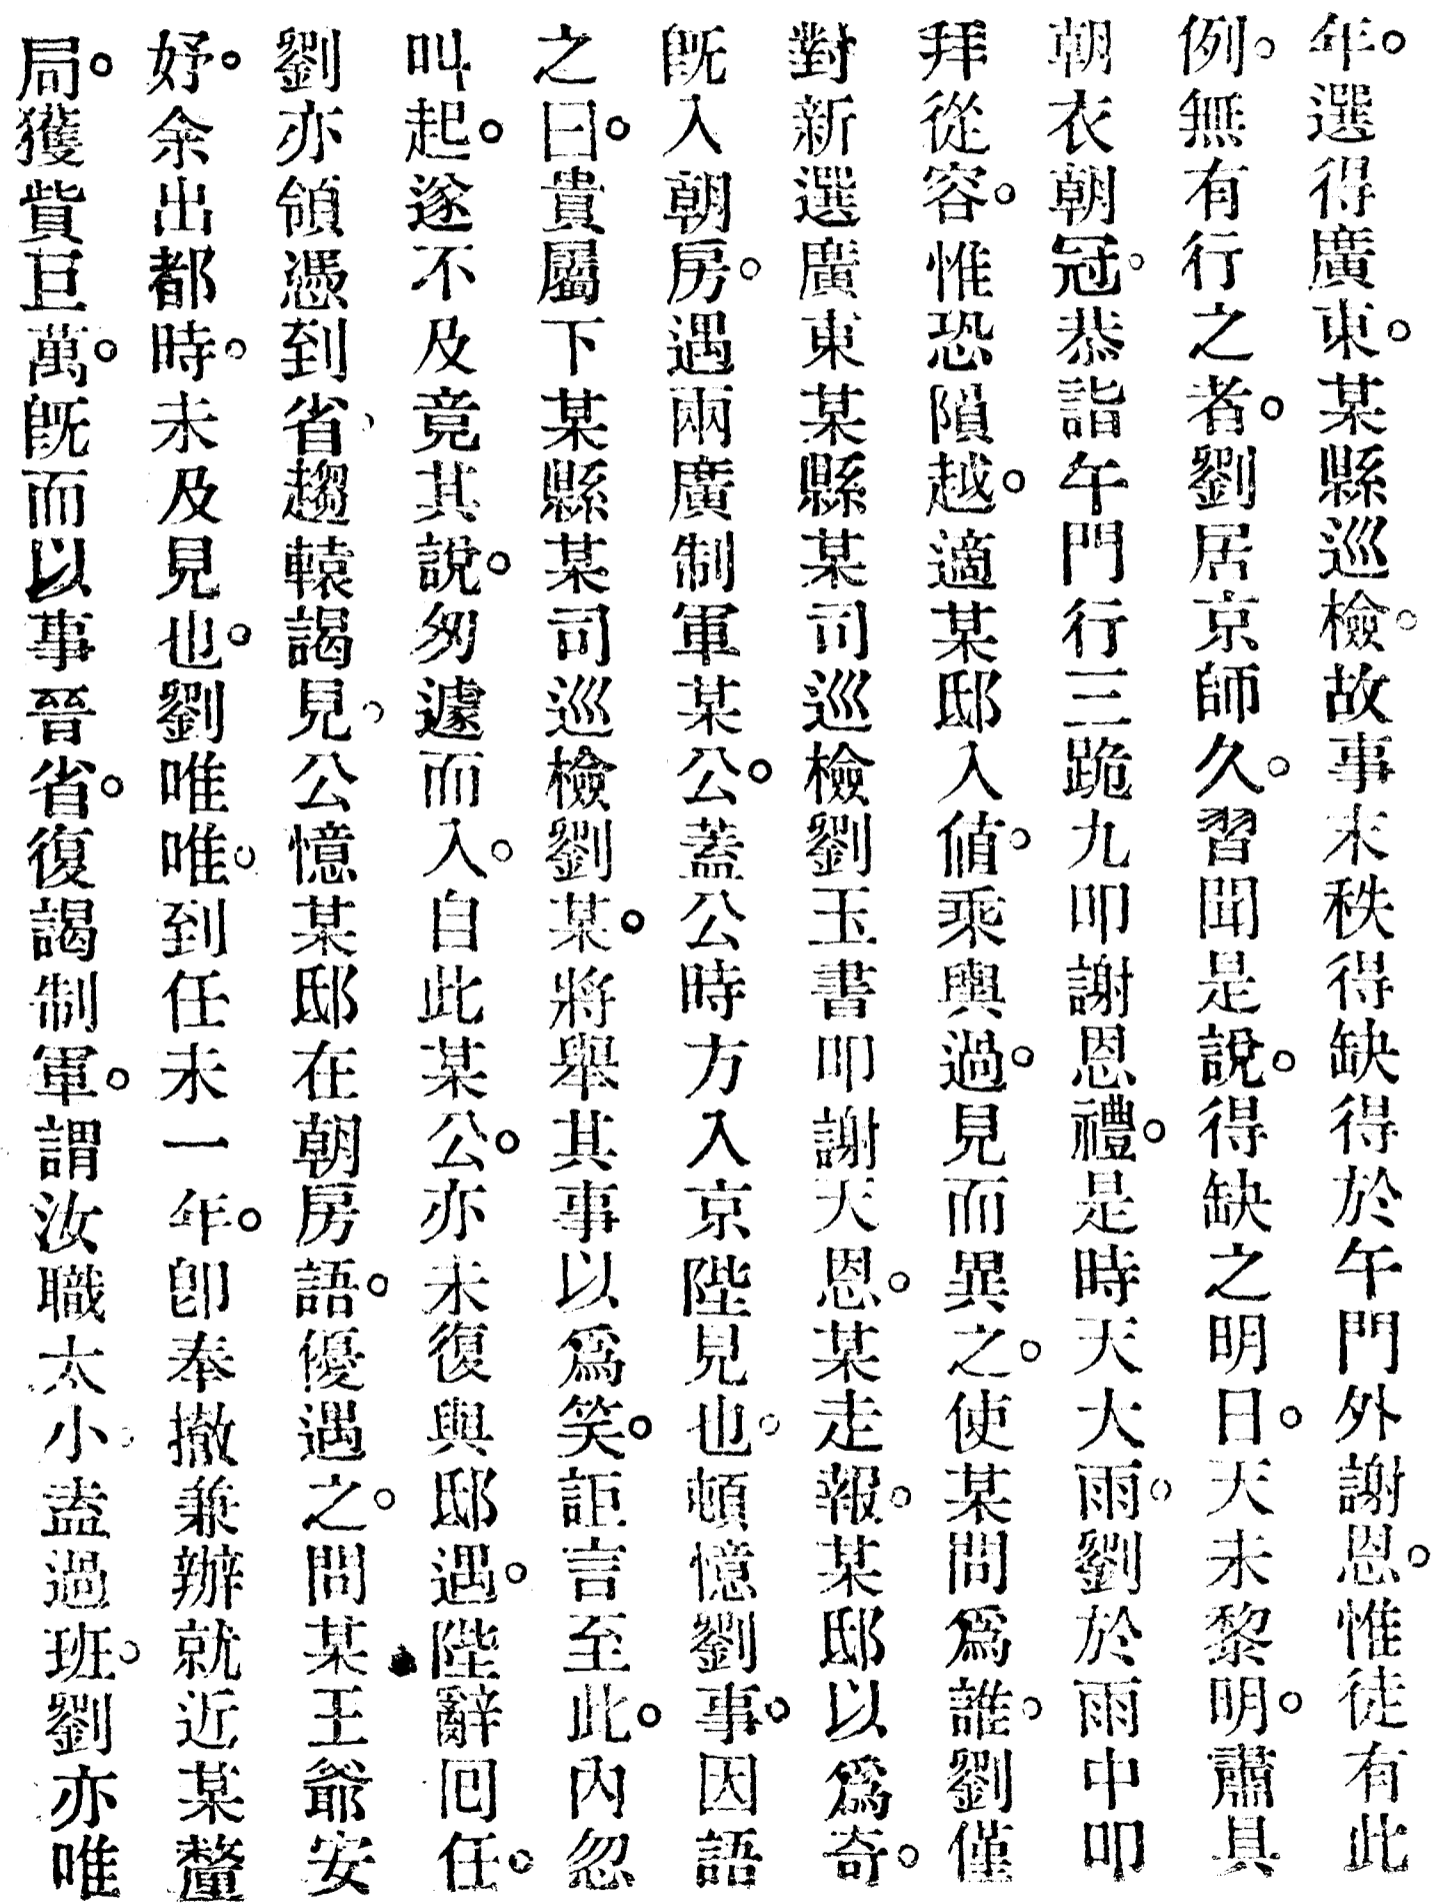 年。選得廣東。某縣巡檢。故事末秩得缺得於午門外謝恩。惟徒有此
例。無有行之者。劉居京師久。習聞是說。得缺之明日。天未黎明。肅具
朝衣朝冠。恭詣午門行三跪九叩謝恩禮。是時天大雨。劉於雨中叩
拜從容。惟恐隕越。適某邸入値。乘輿過。見而異之。使某問爲誰。劉僅
對新選廣東某縣某司巡檢劉玉書叩謝天恩。某走報。某邸以爲奇。
旣入朝房。遇兩廣制軍某公。蓋公時方入京陛見也。頓憶劉事。因語
之曰。貴屬下某縣某司巡檢劉某。將舉其事以爲笑。詎言至此。內忽
叫起。遂不及竟其說。匆遽而入。自此某公。亦未復與邸遇。陛辭回任。
劉亦領憑到省、趨轅謁見。公憶某邸在朝房語。優遇之。問某王爺安
妤。余出都時。未及見也。劉唯唯。到任未一年。卽奉撤兼辦就近某釐
局。獲貲巨萬。旣而以事晉省。復謁制軍。謂汝職太小。盍過班。劉亦唯